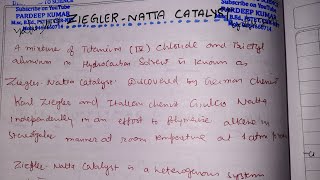 Subscribe on YouTube
PARDEEP KUMAR
ZIEGLER-NATTA CATALY
Subscribe on You
PARDEEP KUM
A mixture of Titanium (IV) Chloride and Triethyl
aluminium in Hydrocarbon Solvent is known as
Ziegler-Natta Catalyst. Discovered by German Chemist
Karl Ziegler and Italian chemist Giulio Natta
Independently in an effort to Polymerise alkene in
Stereoregular manner at room temperature at 1 atm
Ziegler-Natta Catalyst is a heterogenous system